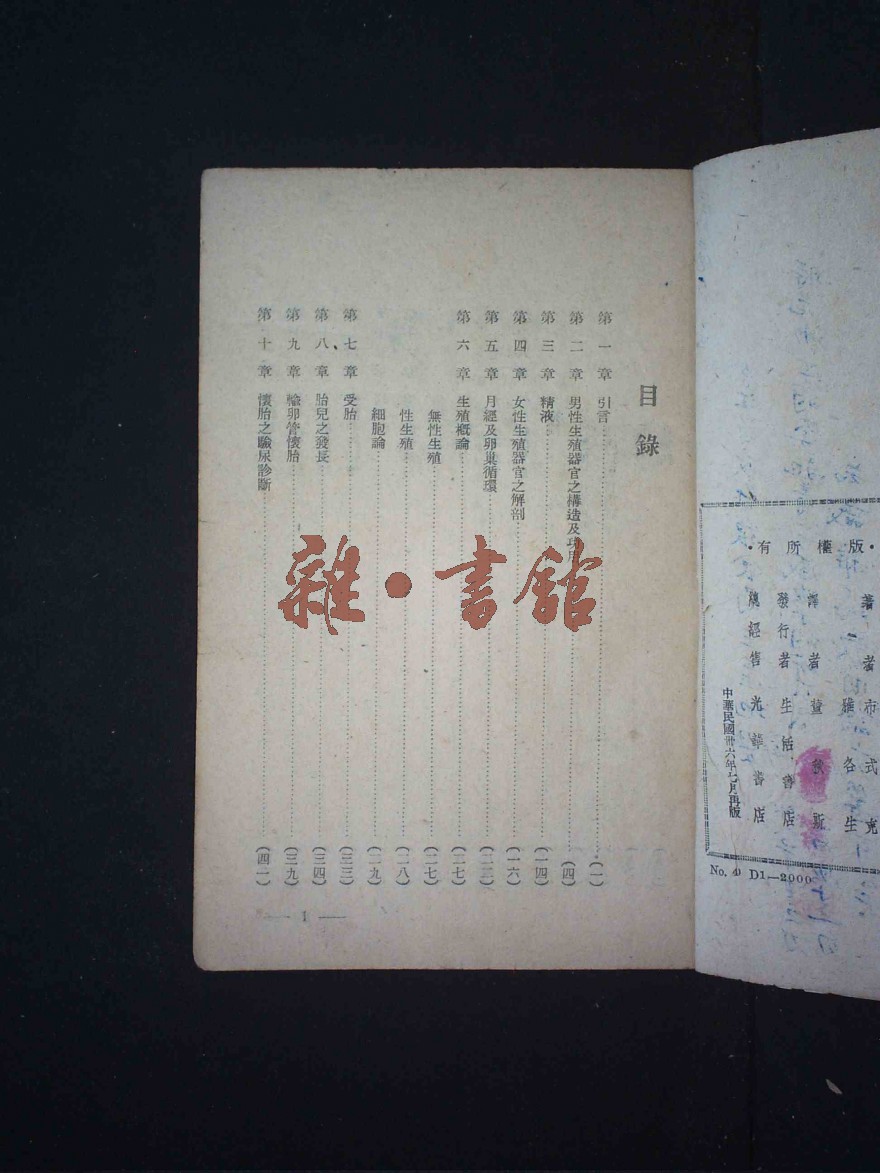 目錄
第一章 引言……(一)
第二章 男性生殖器官之構造及功用……(四)
第三章 精液……(一四)
第四章 女性生殖器官之解剖……(一六)
第五章 月經及卵巢循環……(二三)
第六章 生殖概論……(二七)
無性生殖……(二七)
性生殖……(二八)
細胞論……(二九)
第七章 受胎……(三三)
第八章 胎兒之發長……(三四)
第九章 輸卵管懷胎……(三九)
第十章 懷胎之驗尿診斷……(四一)
— 1 —
雜·書館
·有所權版·
著者 布式克
雅各生
譯者 董秋斯
發行者 生活書店
總經售 光華書店
中華民國卅六年七月再版
No. 49 D1—2000